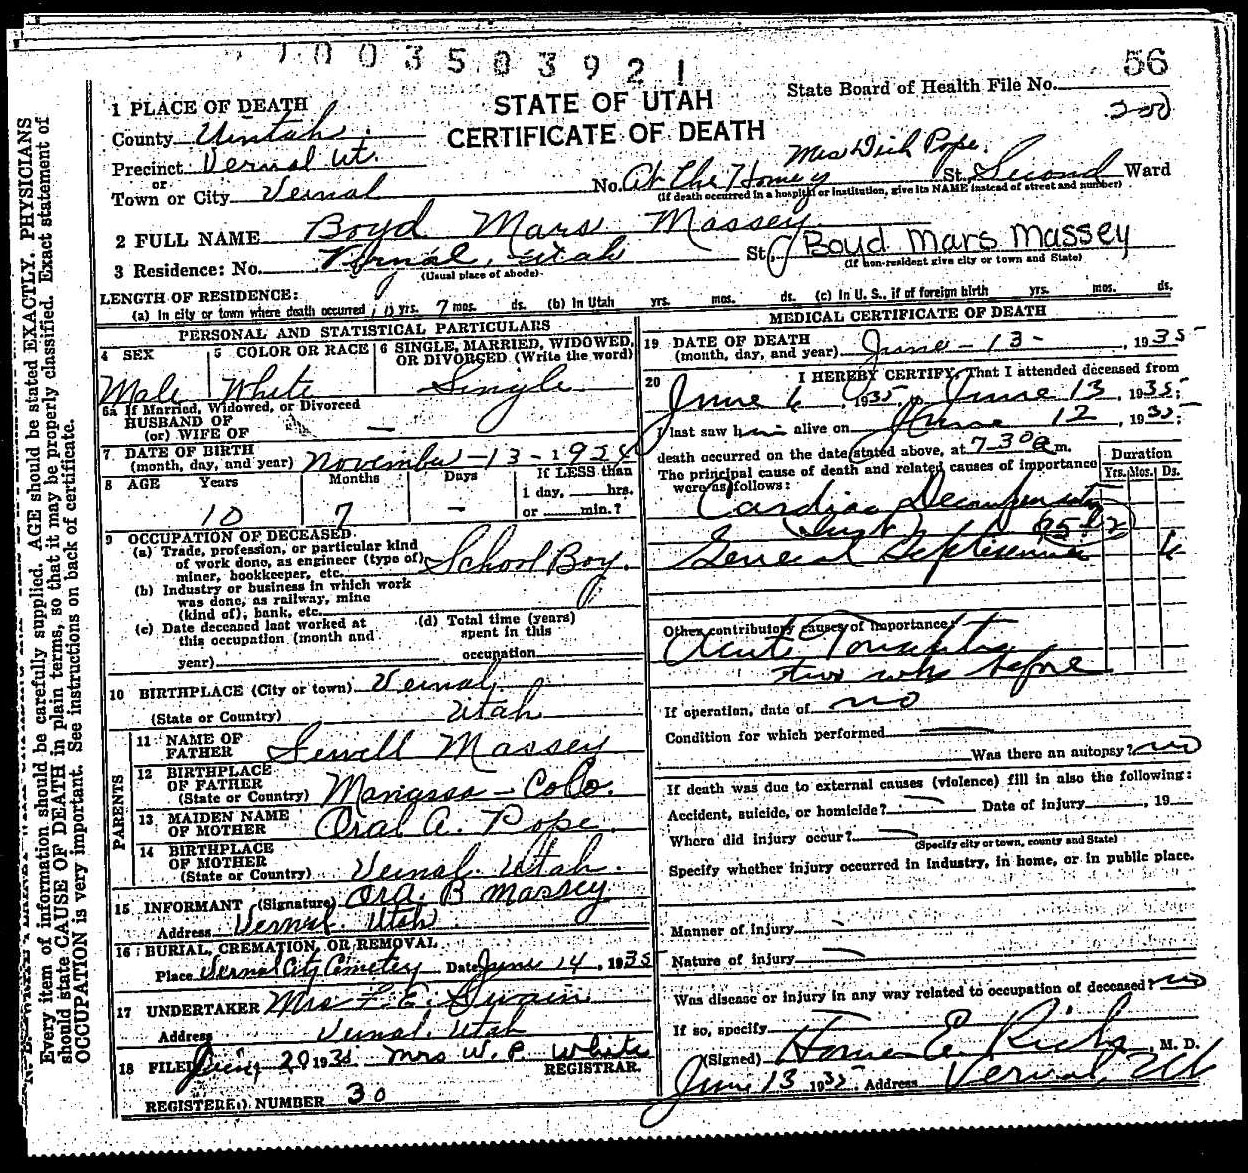 1003503921
56
State Board of Health File No.
STATE OF UTAH
CERTIFICATE OF DEATH
1 PLACE OF DEATH
County Uintah
Precinct Vernal Ut.
or
Town or City Vernal
No. At the Home of Mrs Dick Pope. St. Second Ward
(If death occurred in a hospital or institution, give its NAME instead of street and number)
2 FULL NAME Boyd Mars Massey
3 Residence: No. Vernal, Utah St. (Boyd Mars Massey
(Usual place of abode)
(If non-resident give city or town and State)
LENGTH OF RESIDENCE:
(a) In city or town where death occurred 10 yrs. 7 mos. ds. (b) In Utah yrs. mos. ds. (c) In U. S., if of foreign birth yrs. mos. ds.
PERSONAL AND STATISTICAL PARTICULARS
4 SEX
Male
5 COLOR OR RACE
White
6 SINGLE, MARRIED, WIDOWED,
OR DIVORCED (Write the word)
Single
6a If Married, Widowed, or Divorced
HUSBAND OF
(or) WIFE OF —
7 DATE OF BIRTH
(month, day, and year) November-13-1924
8 AGE Years Months Days If LESS than
1 day, hrs.
or min.?
10 7 -
9 OCCUPATION OF DECEASED
(a) Trade, profession, or particular kind
of work done, as engineer (type of)
miner, bookkeeper, etc. School Boy.
(b) Industry or business in which work
was done, as railway, mine
(kind of), bank, etc.
(c) Date deceased last worked at
this occupation (month and
year)
(d) Total time (years)
spent in this
occupation
10 BIRTHPLACE (City or town) Vernal
(State or Country) Utah
PARENTS
11 NAME OF
FATHER Sewell Massey
12 BIRTHPLACE
OF FATHER
(State or Country) Mangass - Colo.
13 MAIDEN NAME
OF MOTHER Oral A. Pope.
14 BIRTHPLACE
OF MOTHER
(State or Country) Vernal. Utah.
15 INFORMANT (Signature) Ora. B Massey
Address Vernal. Utah.
16 BURIAL, CREMATION, OR REMOVAL
Place Vernal City Cemetery Date June 14, 1935
17 UNDERTAKER Mrs F. E. Swain
Address Vernal. Utah
18 FILED 20 1935 Mrs W. P. White
REGISTRAR.
REGISTERED NUMBER 30
MEDICAL CERTIFICATE OF DEATH
19 DATE OF DEATH
(month, day, and year) June-13-, 1935
20 I HEREBY CERTIFY, That I attended deceased from
June 6 1935, to June 13, 1935;
I last saw him alive on June 12, 1935;
death occurred on the date stated above, at 7-30a m.
The principal cause of death and related causes of importance
were as follows:
Duration
Yrs. Mos. Ds.
Cardiac Decompensation
General Septicemia
Other contributory causes of importance:
Acute Tonsilitis
two wks before
If operation, date of no
Condition for which performed
Was there an autopsy? no
If death was due to external causes (violence) fill in also the following:
Accident, suicide, or homicide? Date of injury, 19
Where did injury occur?
(Specify city or town, county and State)
Specify whether injury occurred in industry, in home, or in public place.
Manner of injury
Nature of injury
Was disease or injury in any way related to occupation of deceased no
If so, specify
(Signed) Homer E. Rich, M. D.
June 13 1935 Address Vernal, Ut
Every item of information should be carefully supplied. AGE should be stated EXACTLY. PHYSICIANS
should state CAUSE OF DEATH in plain terms, so that it may be properly classified. Exact statement of
OCCUPATION is very important. See instructions on back of certificate.